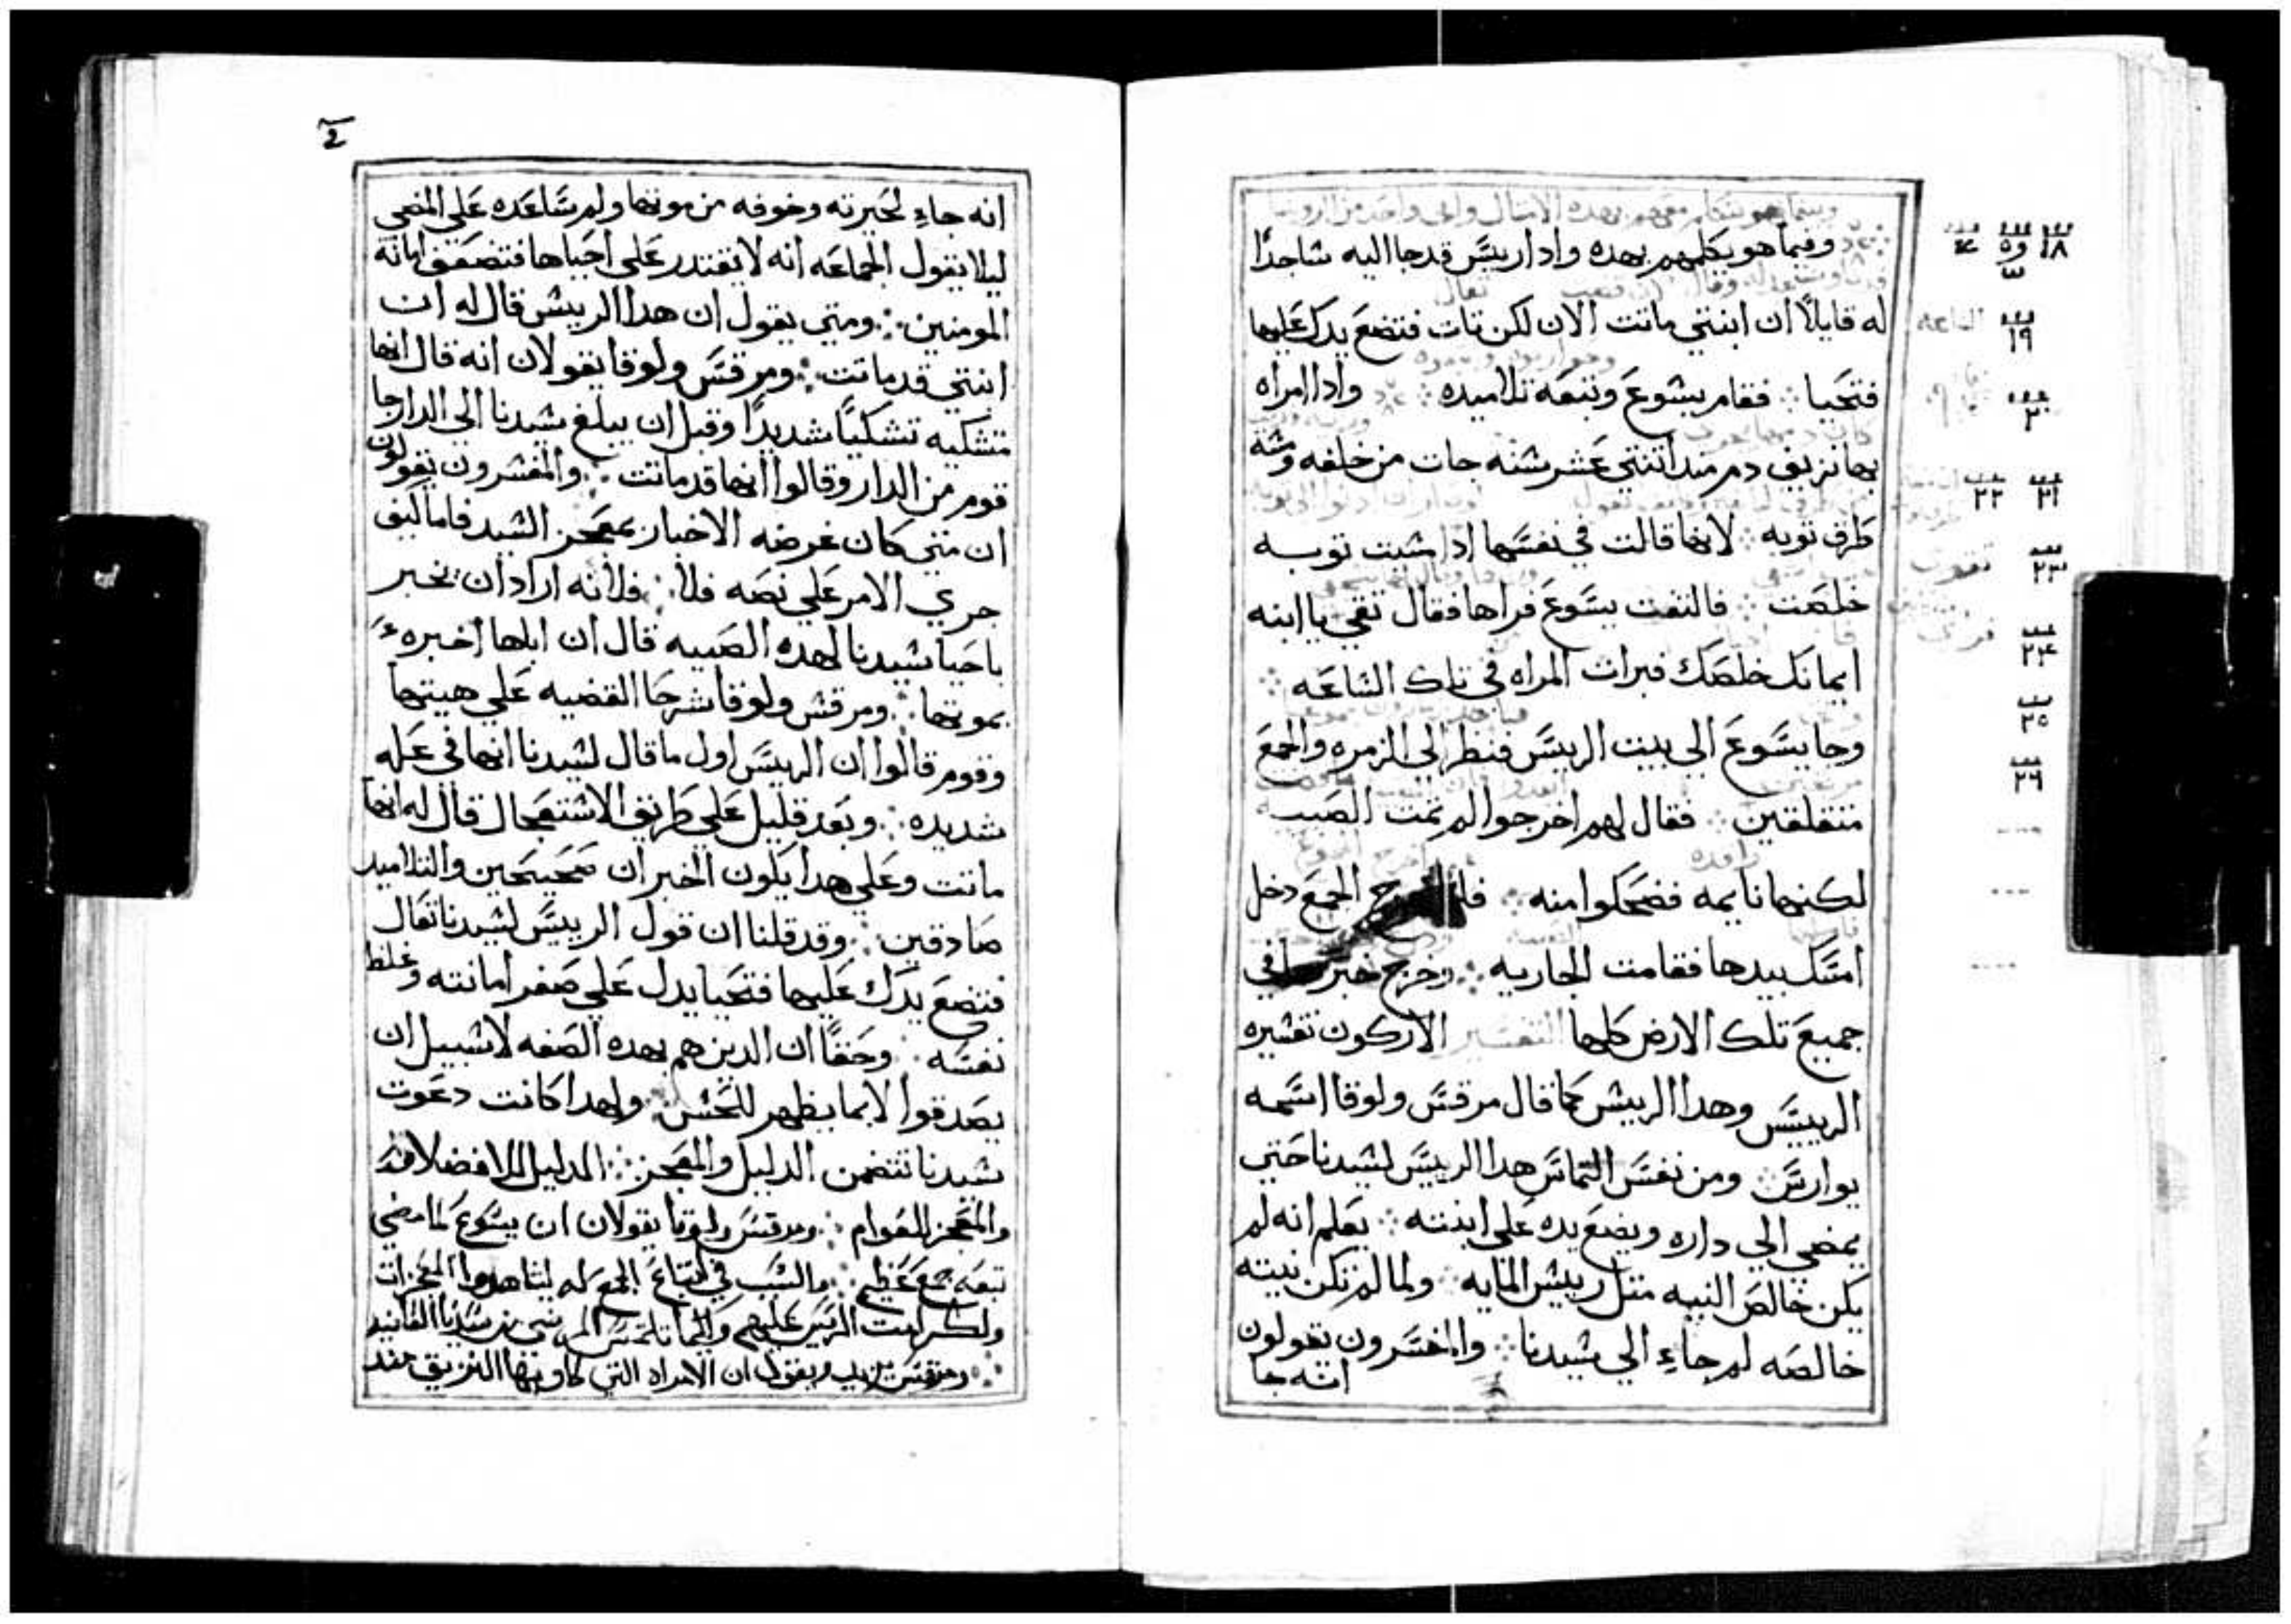 وفيما هو يكلمهم بهده وادا رييسَ قد جا اليه ساجدًا
له قايلاً ان ابنتي ماتت الان لكن تات فتضع يدك عليها
فتحيا ⁘ فقام يسَوعَ وتبعَه تلاميده ⁘ وادا امراه
بها نزيف دم مند اتنتي عشر سنه جات من خلفه ومسَه
طرف توبه ⁘ لانها قالت في نفسَها ادا مسيت توبه
خلصَت ⁘ فالتفت يسَوعَ فراها فقال تقي يا ابنه
ايمانك خلصَك فبرات المراه في تلك السَاعَه ⁘
وجا يسَوعَ الي بيت الرييسَ فنظر الي الزمره والجمعَ
متقلقين ⁘ فقال لهم اخرجوا لم تمت الصَبيه
لكنها نايمه فضحَكوا منه ⁘ فلما خرج الجمعَ دخل
امسَك بيدها فقامت الجاريه ⁘ وخرج خبرها في
جميعَ تلك الارض كلها التفسَير الاركون تفسيره
الرييسَ وهدا الرييس كما قال مرقسَ ولوقا اسَمه
يوارسَ ⁘ ومن نفسَ التماسَ هدا الرييسَ لسيدنا حَتي
يمضي الي داره ويضعَ يده عَلي ابنته ⁘ يعَلم انه لم
يكن خالصَ النيه متل رييس المايه ⁘ ولما لم تكن نيته
خالصَه لم جاء الي سيدنا ⁘ والمفسَرون يقولون
انه جا
2
انه جاء لحَيرته وخوفه من موتها ولم سَاعَده عَلي المضي
ليلا يقول الجماعَه انه لا يقتدر عَلي احَياها فتضعَف امانة
المومنين ⁘ ومتي يقول ان هدا الرييس قال له ان
ابنتي قد ماتت ⁘ ومرقسَ ولوقا يقولان انه قال انها
متشكيه تشكيًا شديدًا وقبل ان يبلغ سيدنا الي الدار جا
قوم من الدار وقالوا انها قد ماتت ⁘ والمفسرون يقولون
ان متي كان غرضه الاخبار بمعَجز السيد فاما كيف
جري الامر عَلي نصَه فلا ⁘ فلانه اراد ان يخبر
باحَيا سيدنا لهده الصَبيه قال ان اباها اخبره
بموتها ⁘ ومرقس ولوقا شرحَا القضيه عَلي هيتها
وقوم قالوا ان الرييسَ اول ما قال لسيدنا انها في عَله
شديده ⁘ وبعَد قليل عَلي طريق الاستعَجال قال له انها
ماتت وعَلي هدا يكون الخبران صَحَيحَين والتلاميد
صَادقين ⁘ وقد قلنا ان قول الرييسَ لسيدنا تعَال
فتضعَ يدك عَليها فتحَيا يدل عَلي صَغر امانته وغلظ
نفسَه ⁘ وحَقًا ان الدين هم بهده الصَفه لا سبيل ان
يصَدقوا الا بما يظهر للحَس ⁘ ولهدا كانت دعَوت
سيدنا تتضمن الدليل والمعَجز ⁘ الدليل للافضلا
والمعَجز للعَوام ⁘ ومرقسَ ولوقا يقولان ان يسَوعَ لما مضي
تبعَه جمعَ عَظيم ⁘ والسَبب في اتباعَ الجمعَ له ليشاهدوا المعَجزات
من سَيدنا
ومرقسَ يقول ان الامراه التي كان بها النزيق